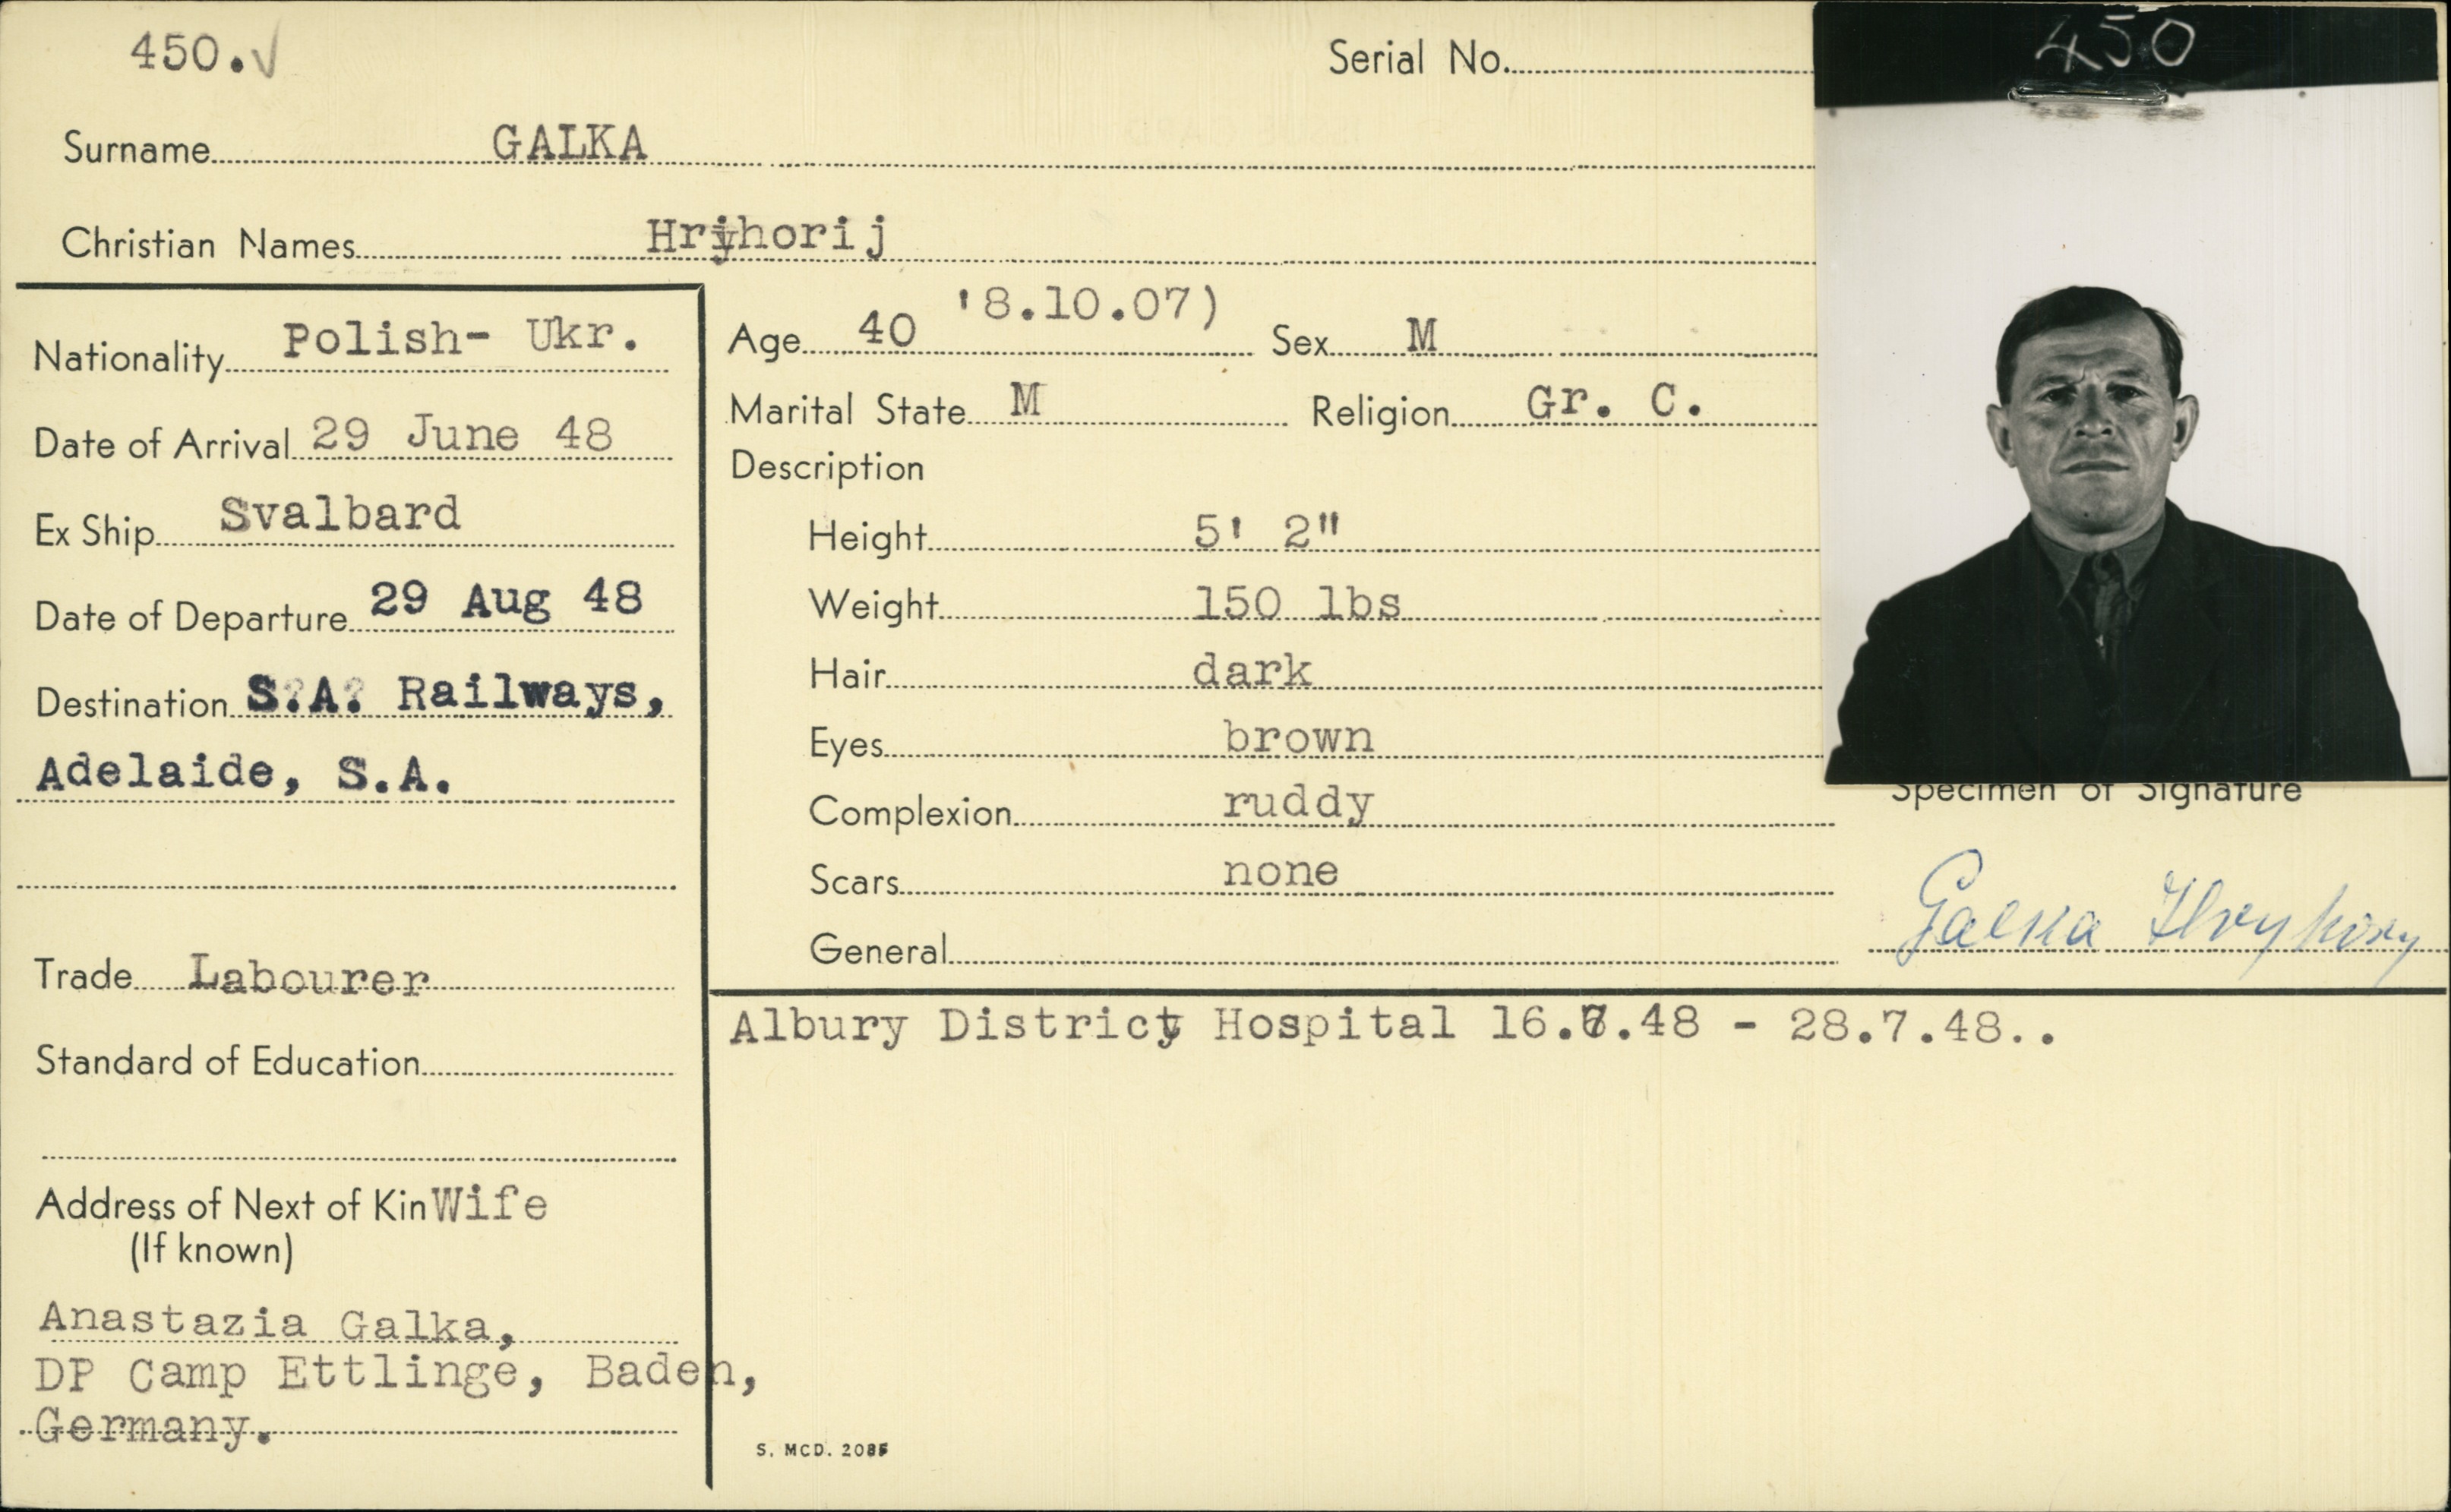 450. ✓
Serial No.
450
Surname GALKA
Christian Names Hryhorij
Nationality Polish- Ukr.
Date of Arrival 29 June 48
Ex Ship Svalbard
Date of Departure 29 Aug 48
Destination S.A. Railways,
Adelaide, S.A.
Trade Labourer
Standard of Education
Address of Next of Kin Wife
(If known)
Anastazia Galka,
DP Camp Ettlinge, Baden,
Germany.
Age 40 '8.10.07) Sex M
Marital State M Religion Gr. C.
Description
Height 5' 2"
Weight 150 lbs
Hair dark
Eyes brown
Complexion ruddy
Scars none
General
Specimen of Signature
Galka Hryhory
Albury District Hospital 16.7.48 - 28.7.48..
S. MCD.